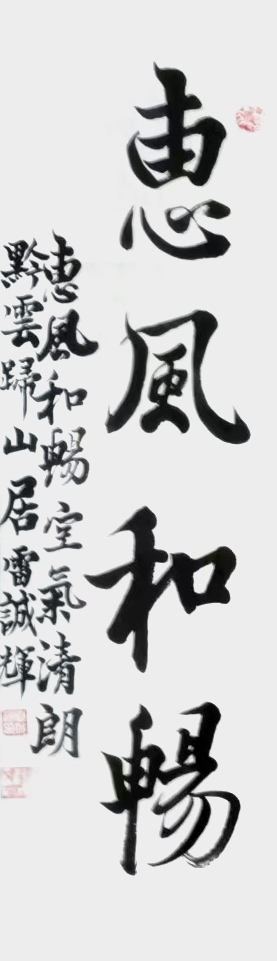 惠風和暢
惠風和暢室氣清朗
黔雲歸山居雷誠輝